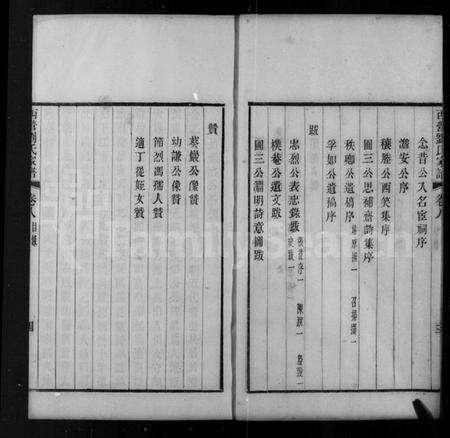 西營劉氏家譜 卷八
念昔公入名宦祠序
澹安公序
穰塍公西笑集序
圖三公思補齋詩集序
秩卿公遺稿序
孚如公遺稿序
跋
忠烈公表忠錄跋
樸菴公遺文跋
圖三公淵明詩意圖跋
贊
葵巖公像贊
幼謙公像贊
節烈馮孺人贊
適丁從姪女贊
西營劉氏家譜 卷八 目錄
四
FamilySearch